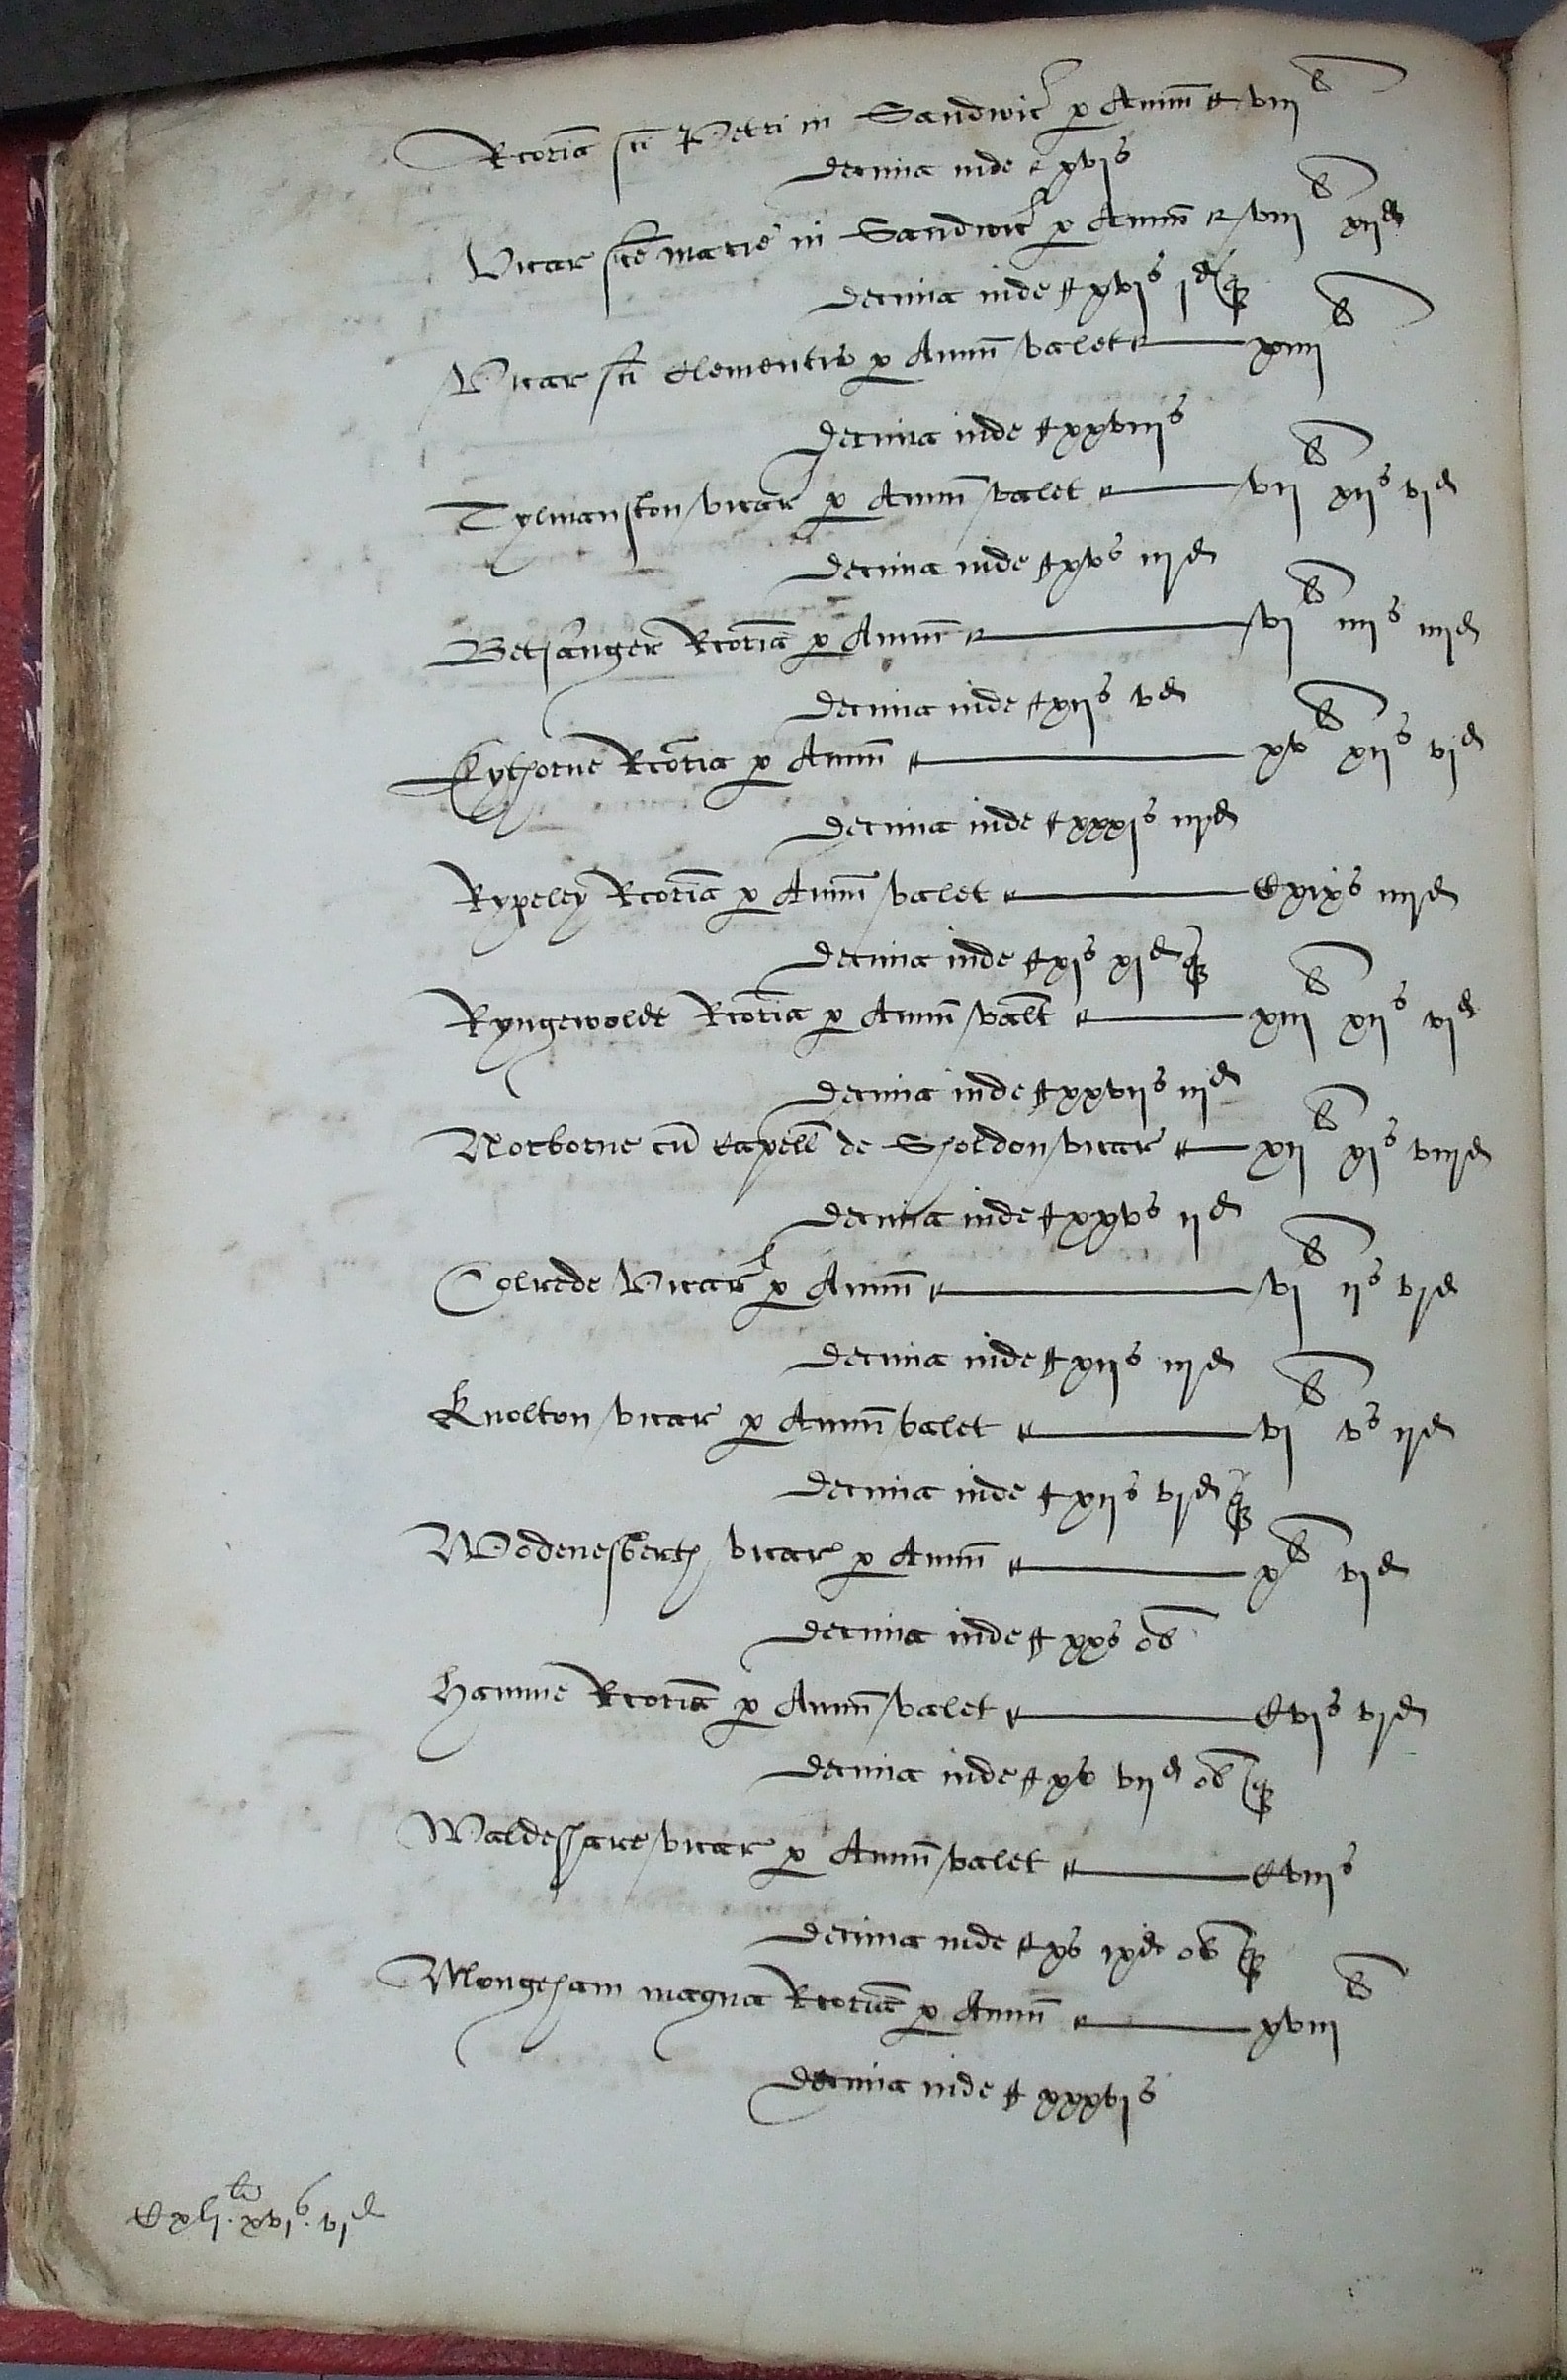 Rcoria sci Petri in Sandwic p Annu viij li
Decima inde xvj s
Vicar sce marie in Sandwic p Annu viij li xij d
Decima inde xvj s j d q
Vicar sci Clementis p Annu valet xiiij li
Decima inde xxviij s
Tylmanston vicar p Annu valet vij li xij s vj d
Decima inde xv s iij d
Betshanger Rcoria p Annu vj li iiij s iiij d
Decima inde xij s v d
Sythorne Rcoria p Annu xv li xij s vj d
Decima inde xxxj s iij d
Rypeley Rcoria p Annu valet Cxix s iiij d
Decima inde xj s xj d q
Ryngewolde Rcoria p Annu valt xiij li xij s vj d
Decima inde xxvij s iij d
Norborne cu capell de Sholdon vicar xij li xj s viij d
Decima inde xxv s ij d
Colrede Vicar p Annu vj li ij s vj d
Decima inde xij s iij d
Knolton vicar p Annu valet vj li v s ij d
Decima inde xij s vj d q
Wodenesberth vicar p Annu x li vj d
Decima inde xx s ob
Hamme Rcoria p Annu valet Cvj s vj d
Decima inde x s vij d ob q
Waldeshare vicar p Annu valet Cviij s
Decima inde x s ix d ob q
Mongeham magna Rcoria p Annu xviij li
Decima inde xxxvj s
Cxlj li. xvj s. vj d